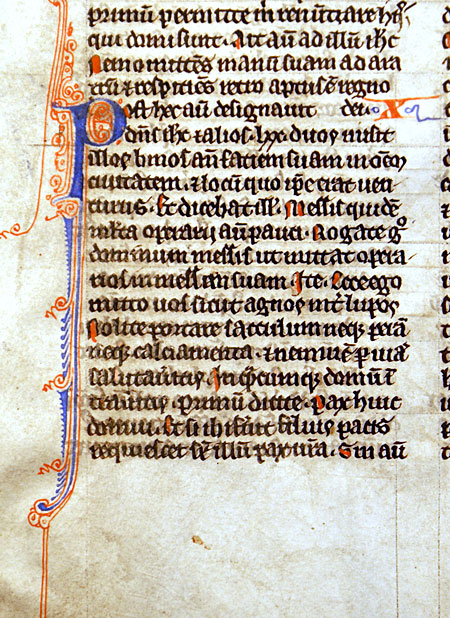 primum permitte m̅ renuntiare hijs
qui domi sunt. Ait au̅ ad illu̅ ihc
Nemo mitte̅s manu̅ suam ad ara
tru̅ ⁊ respicie̅s retro aptus e̅ regno
Post hec au̅ designavit dei. X
dn̅s ihc ⁊ alios. lxx. duos ⁊ misit
illos binos an̅ faciem suam in om̅em
civitatem. ⁊ locu̅ quo ip̅e erat ven
turus. Et dicebat ill̅. Messis quide̅
multa operarij au̅ pauci. Rogate gͦ
dominum messis ut mittat opera
rios in messem suam. Ite. Ecce ego
mitto vos sicut agnos int̅ lupos
Nolite portare sacculum neqꝫ pera̅
neqꝫ calciamenta. ⁊ nemine̅ p̲ via̅
salutaveritis. In q̅mcumqꝫ domu̅ i̅
traveritis. primu̅ dicite. pax huic
domui. Et si ibi fu̅it filius pacis
requiescet sr̅ illu̅ pax vr̅a. Sin au̅